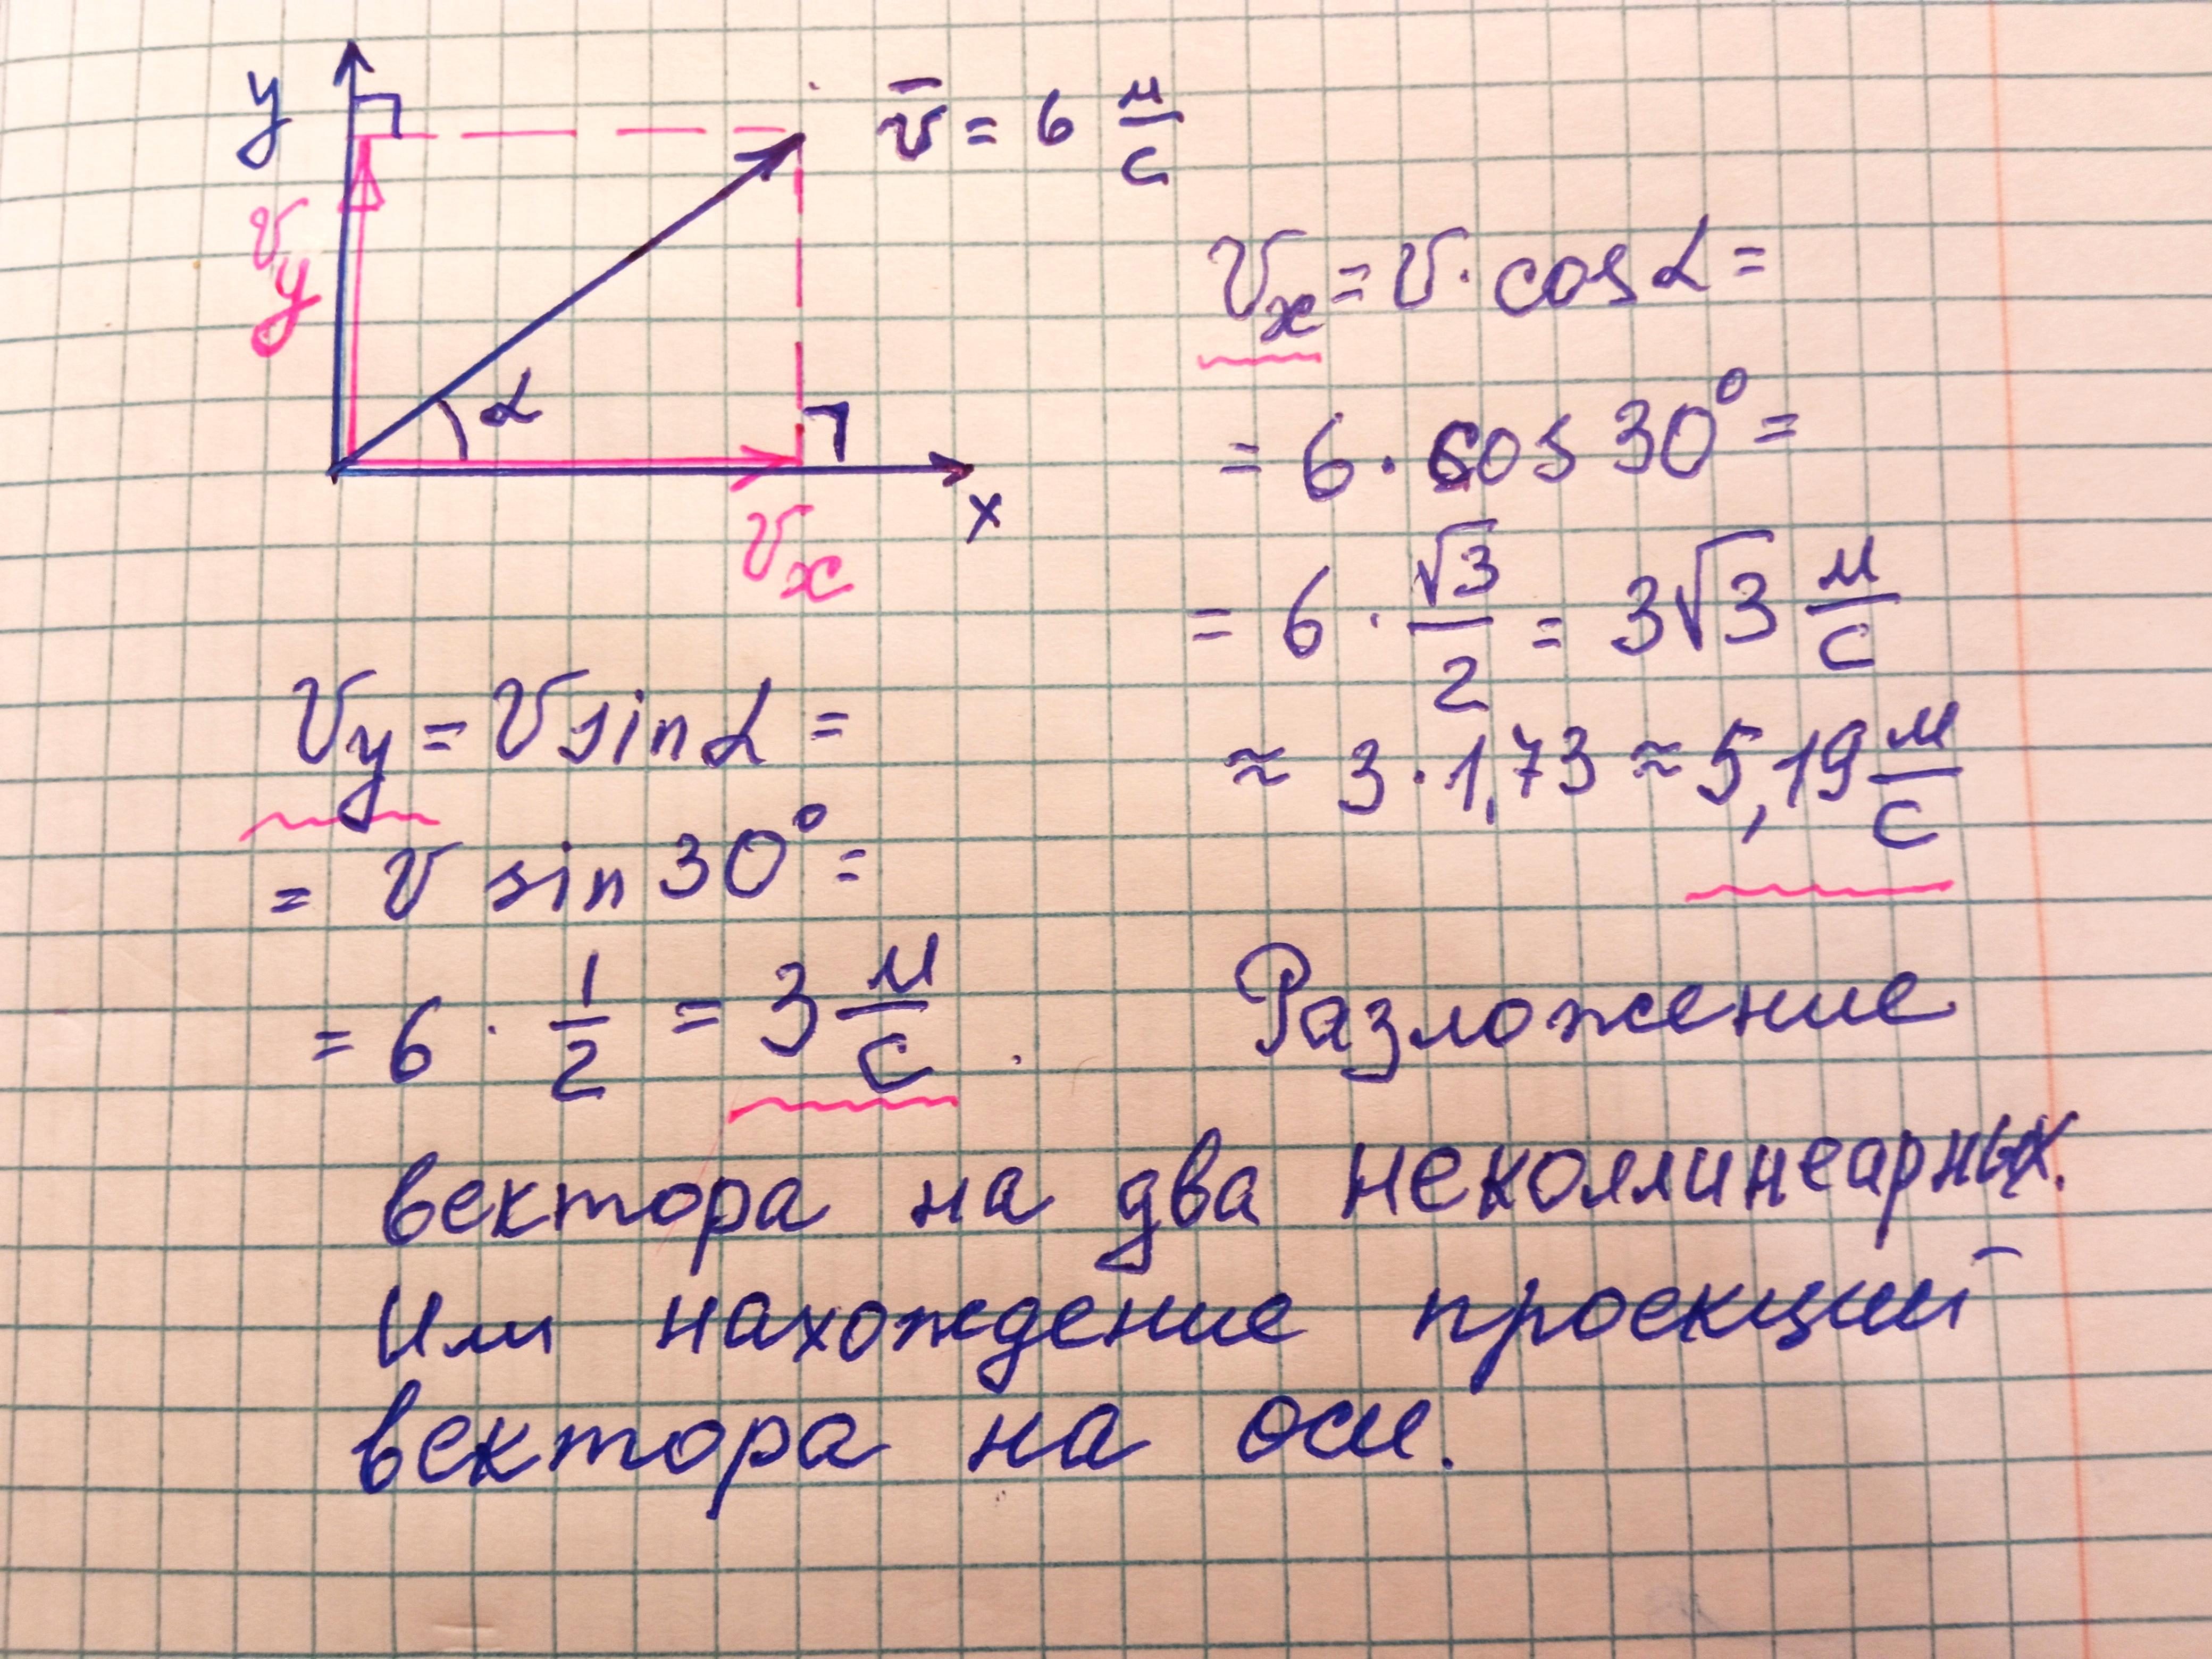 y
v̄ = 6 м/с
v_y
α
x
v_x
v_x = v · cos α =
= 6 · cos 30° =
= 6 · √3/2 = 3√3 м/с
≈ 3 · 1,73 ≈ 5,19 м/с
v_y = v sin α =
= v sin 30° =
= 6 · 1/2 = 3 м/с .
Разложение
вектора на два неколлинеарных.
Или нахождение проекций
вектора на оси.